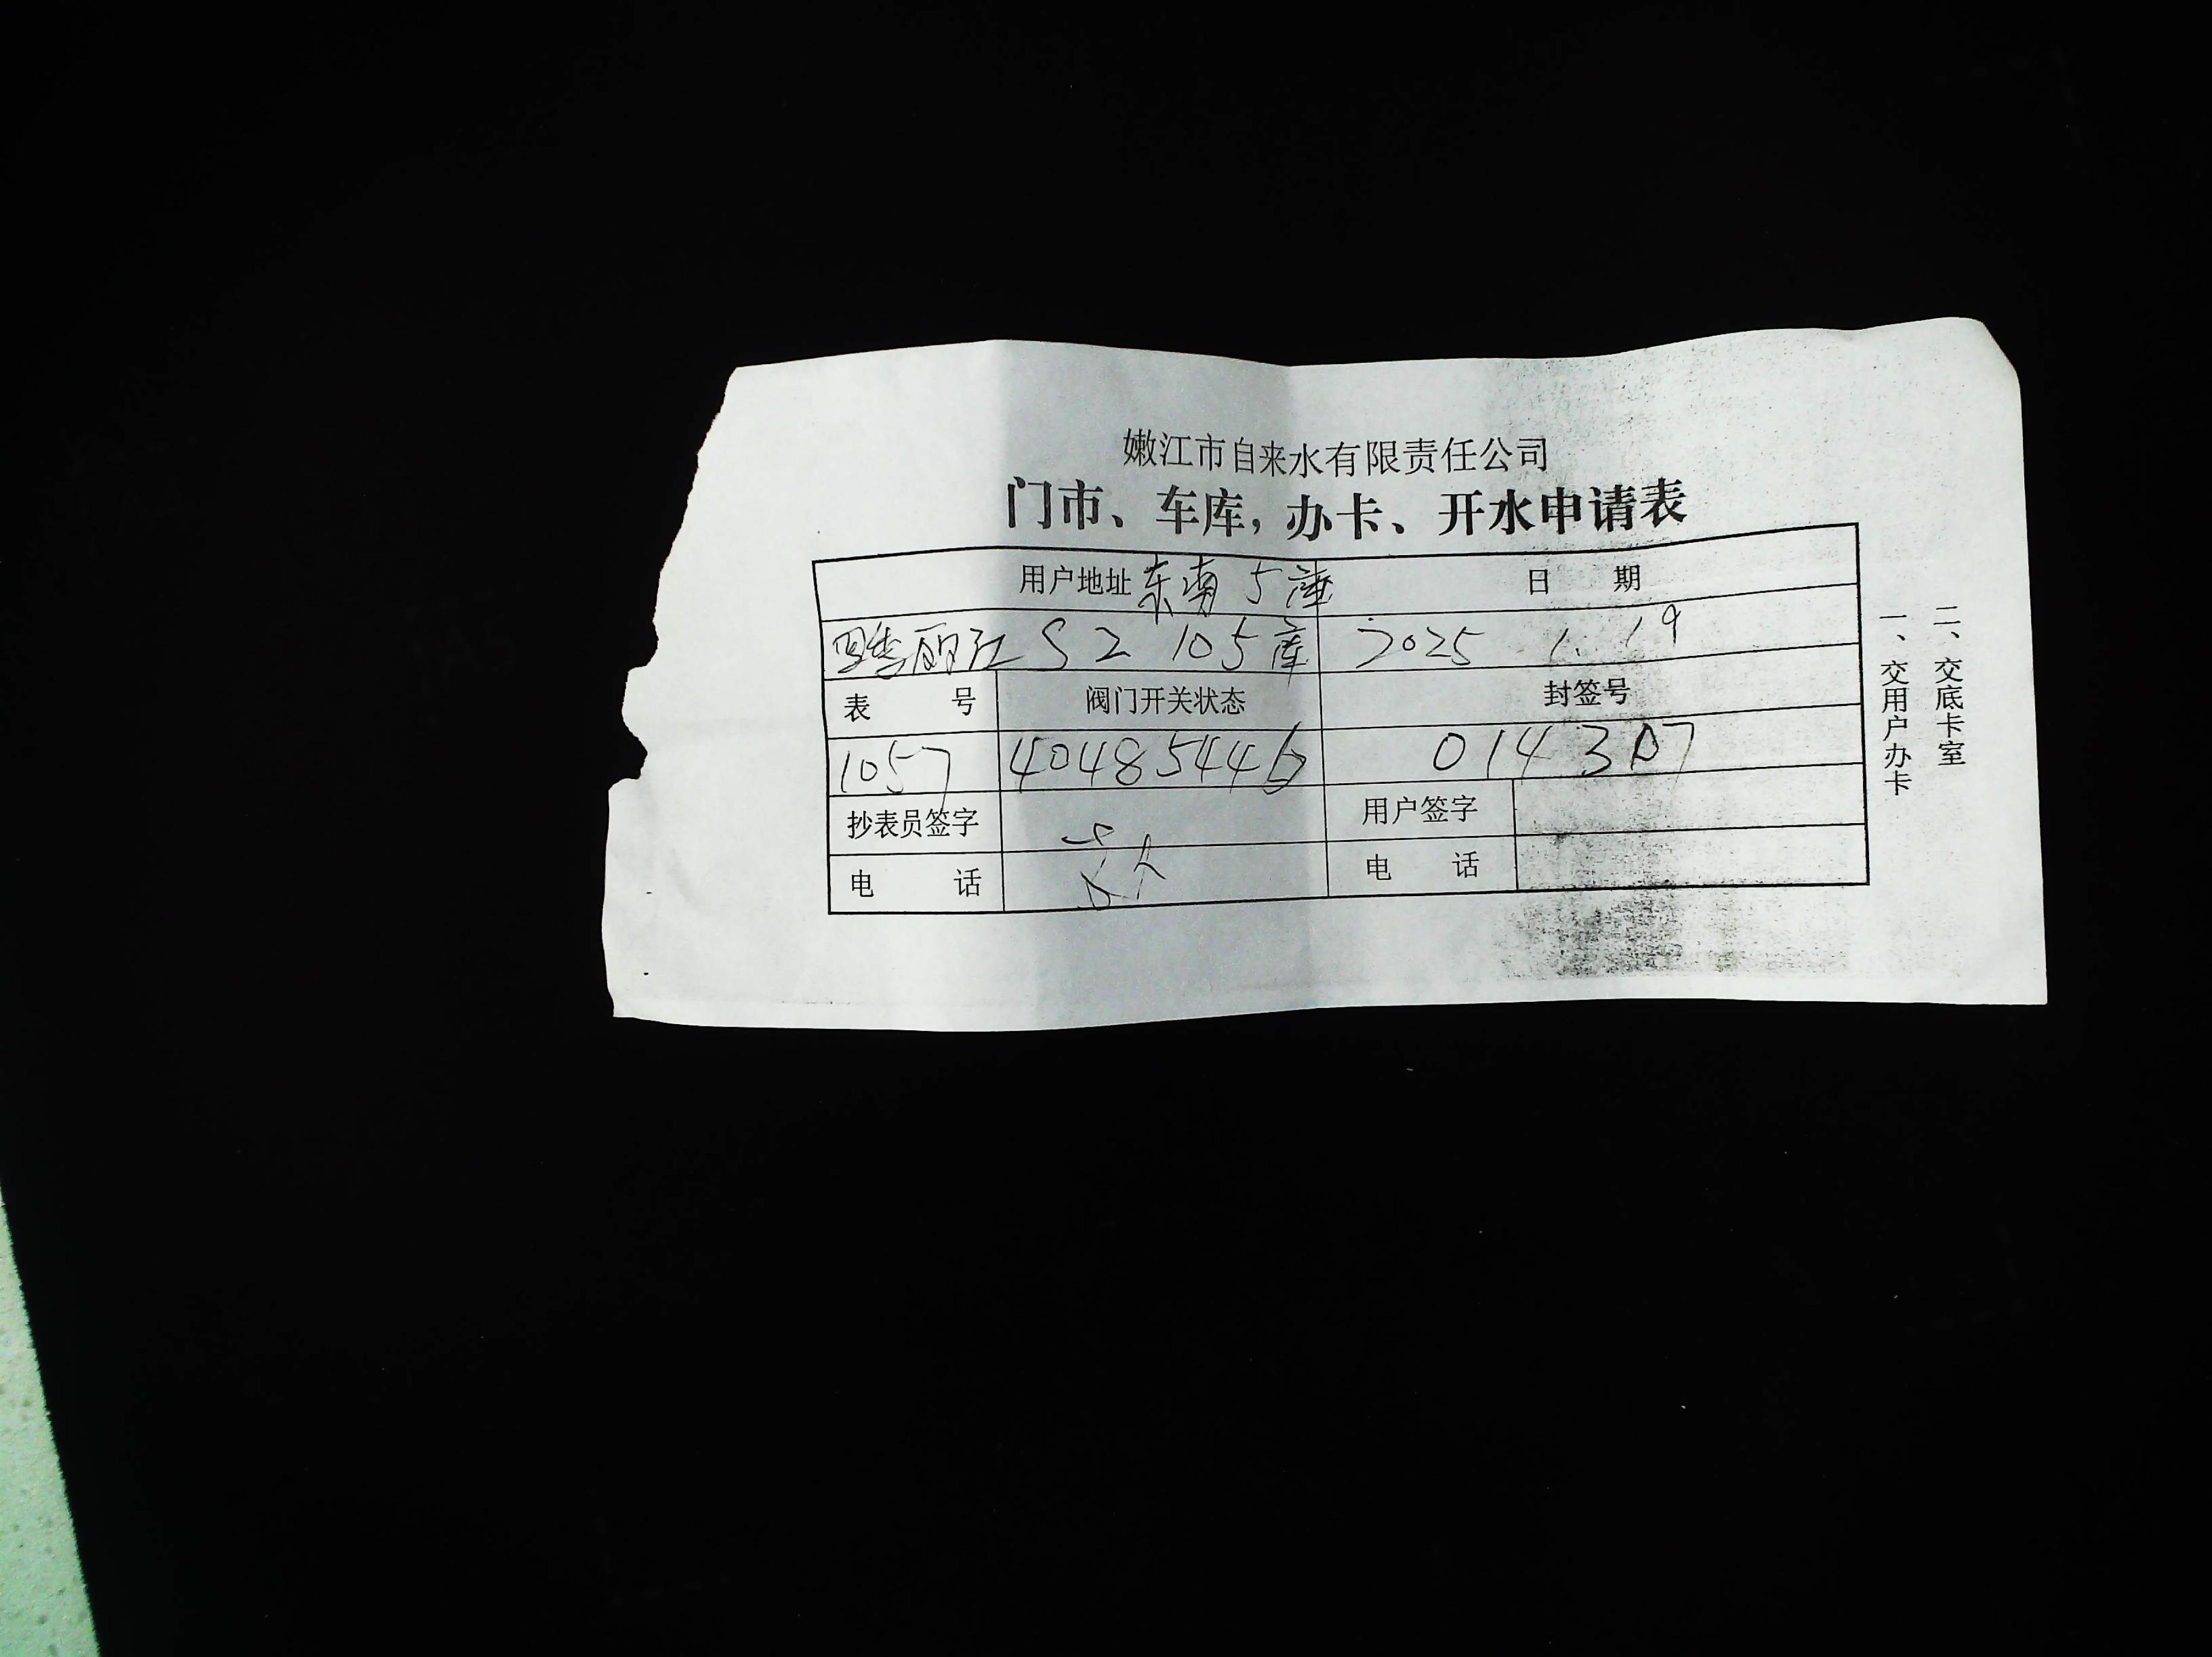 嫩江市自来水有限责任公司
门市、车库,办卡、开水申请表
用户地址 东南5库 日 期
四季丽江 S2 105库 2025 1.19
表 号 阀门开关状态 封签号
1057 40485446 014307
抄表员签字 用户签字
电 话 电 话
一、交用户办卡
二、交底卡室